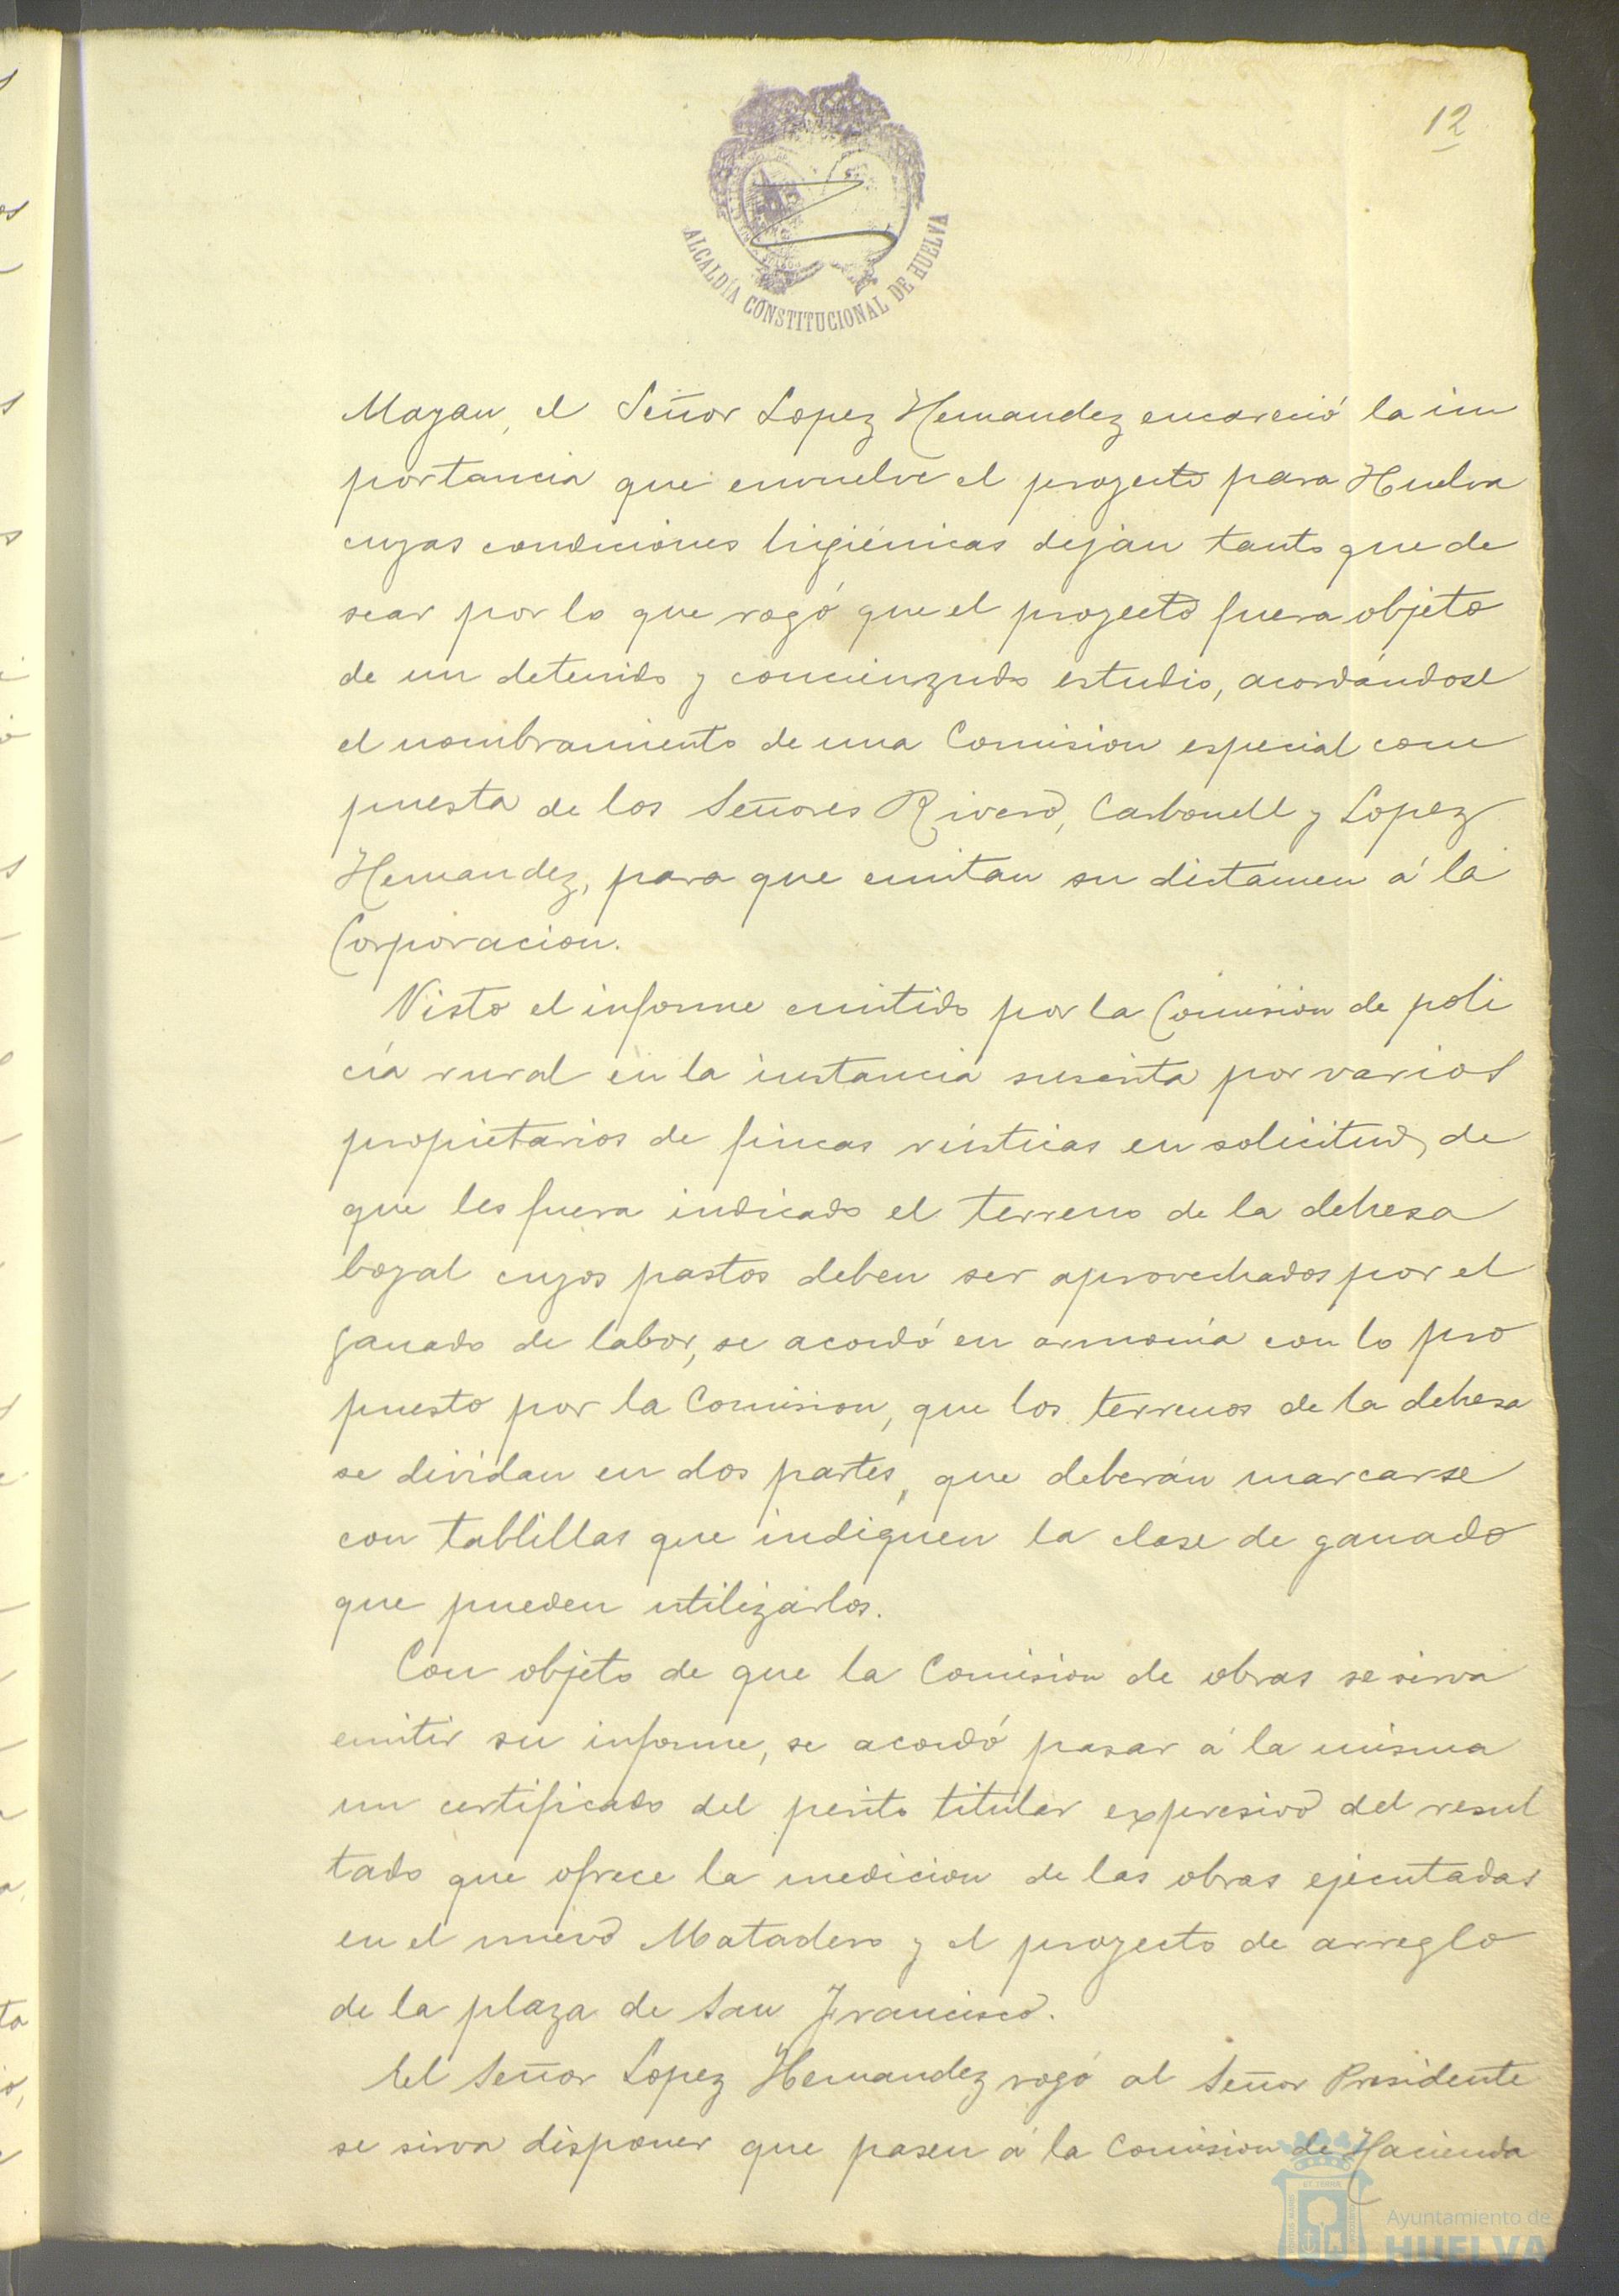 12
ALCALDÍA CONSTITUCIONAL DE HUELVA
Mayan, el Señor Lopez Hernandez encareció la im
portancia que envuelve el proyecto para Huelva
cuyas condiciones higiénicas dejan tanto que de
sear por lo que rogó que el proyecto fuera objeto
de un detenido y concienzudo estudio, acordándose
el nombramiento de una Comision especial com
puesta de los Señores Rivero, Carbonell y Lopez
Hernandez, para que emitan su dictamen á la
Corporacion.
Visto el informe emitido por la Comision de poli
cía rural en la instancia suscrita por varios
propietarios de fincas rústicas en solicitud de
que les fuera indicado el terreno de la dehesa
boyal cuyos pastos deben ser aprovechados por el
ganado de labor, se acordó en armonía con lo pro
puesto por la Comision, que los terrenos de la dehesa
se dividan en dos partes, que deberán marcarse
con tablillas que indiquen la clase de ganado
que pueden utilizarlos.
Con objeto de que la Comision de obras se sirva
emitir su informe, se acordó pasar á la misma
un certificado del perito titular expresivo del resul
tado que ofrece la medicion de las obras ejecutadas
en el nuevo Matadero y el proyecto de arreglo
de la plaza de San Francisco.
El Señor Lopez Hernandez rogó al Señor Presidente
se sirva disponer que pasen á la Comision de Hacienda
Ayuntamiento de
HUELVA